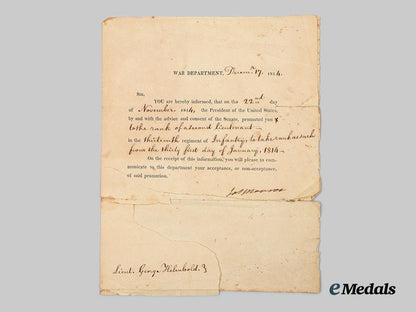 WAR DEPARTMENT, Decem. 17. 1814.
SIR,
YOU are hereby informed, that on the 22nd day
of November 1814, the President of the United States,
by and with the advice and consent of the Senate, promoted you
to the rank of a second lieutenant
in the thirteenth regiment of Infantry, to take rank as such
from the thirty first day of January, 1814
On the receipt of this information, you will please to com-
municate to this department your acceptance, or non-acceptance,
of said promotion.
Jas Monroe
Lieut. George Helmbold.
eMedals